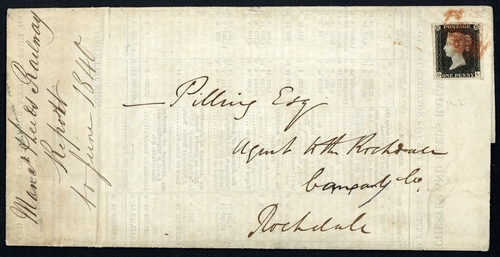 Manr & Leeds Railway
Report
to June 1840
POSTAGE
ONE PENNY
— Pilling Esq
Agent to the Rochdale
Company Co.
Rochdale